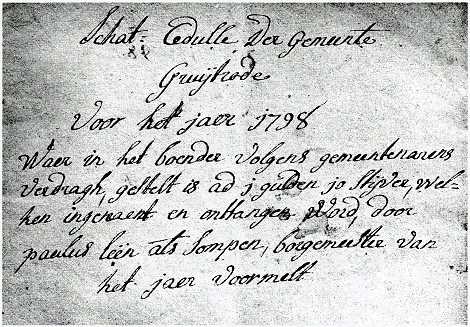 Schat: Cedulle Der Gemeente
Gruijtrode
Voor het jaer 1798
Waer in het boender volgens gemeentenarens
verdragh, gestelt is ad j gulden jo stijver, wel-
ken ingenaemt en ontfangen word, door
paulus leën als Sompen, borgemeester van
het jaer voormelt